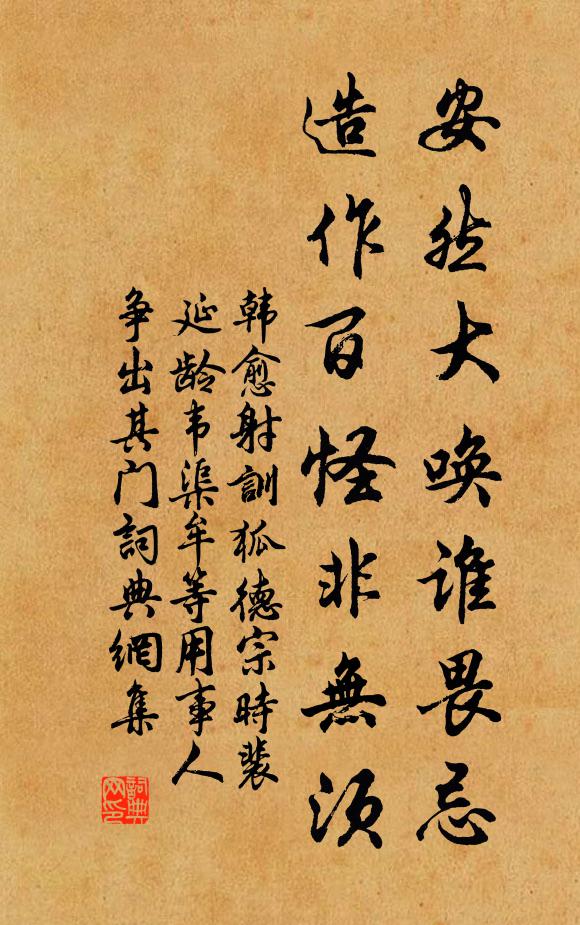 安然大唤谁畏忌
造作百怪非無须
韩愈射訓狐德宗時裴
延龄韦渠牟等用事人
争出其门詞典網集
詞典
网印